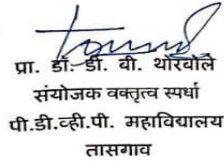 प्रा. डॉ. डी. बी. थोरबोले
संयोजक वक्तृत्व स्पर्धा
पी.डी.व्ही.पी. महाविद्यालय
तासगाव